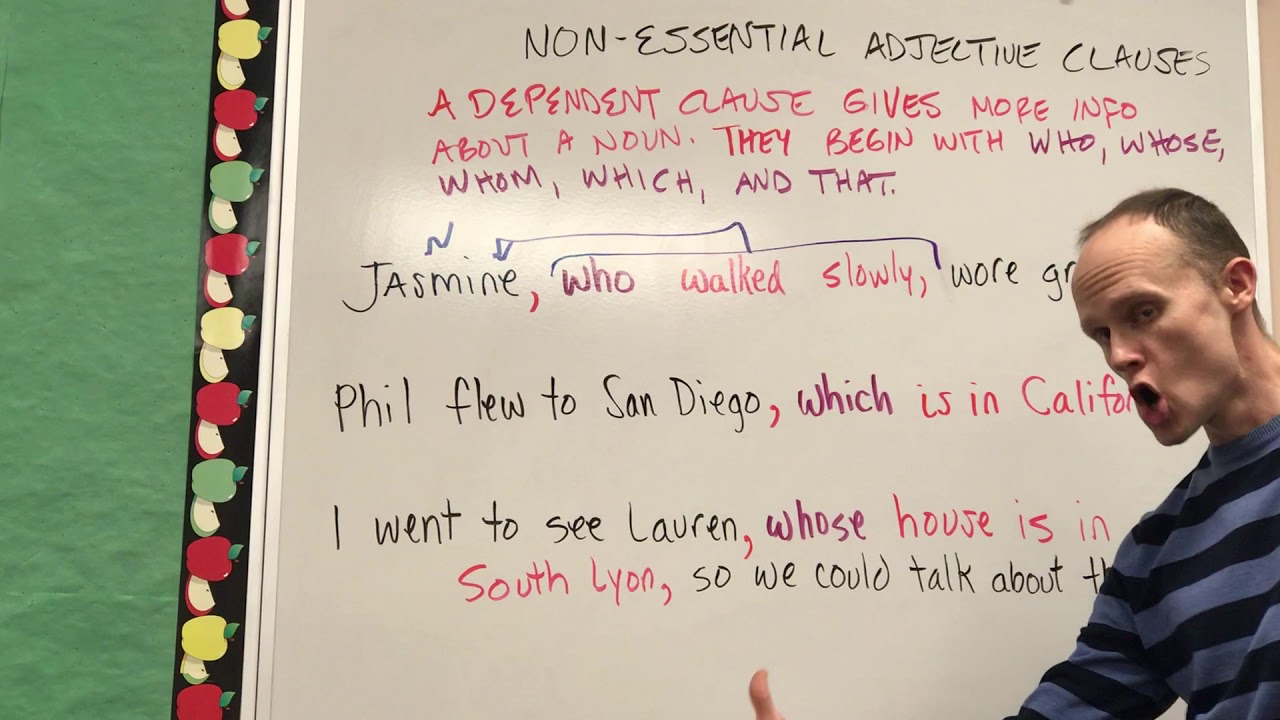 NON-ESSENTIAL ADJECTIVE CLAUSES
A DEPENDENT CLAUSE GIVES MORE INFO
ABOUT A NOUN. THEY BEGIN WITH WHO, WHOSE,
WHOM, WHICH, AND THAT.
N
Jasmine, who walked slowly, wore
Phil flew to San Diego, which is in
I went to see Lauren, whose house is in
South Lyon, so we could talk about